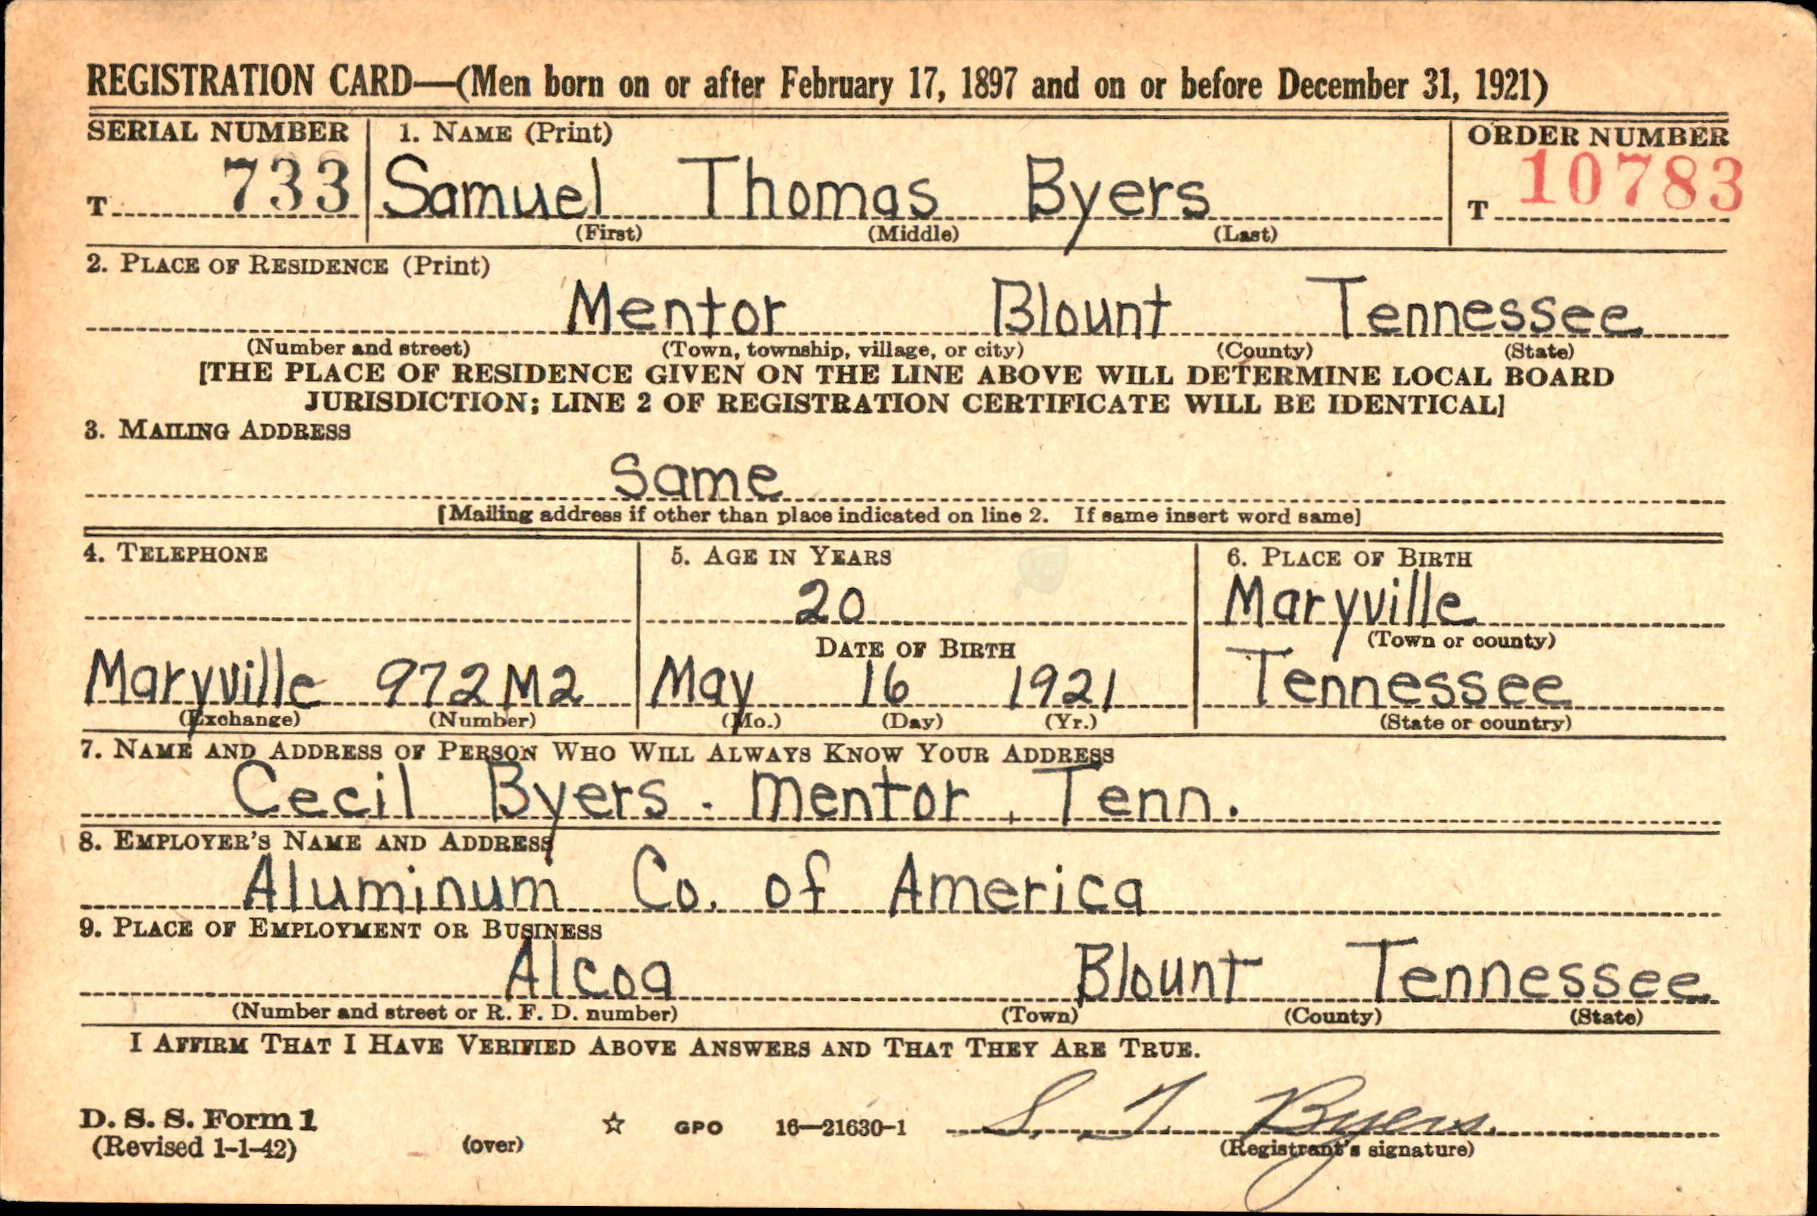 REGISTRATION CARD—(Men born on or after February 17, 1897 and on or before December 31, 1921)
SERIAL NUMBER 1. NAME (Print) ORDER NUMBER
T 733 Samuel Thomas Byers T 10783
(First) (Middle) (Last)
2. PLACE OF RESIDENCE (Print)
Mentor Blount Tennessee
(Number and street) (Town, township, village, or city) (County) (State)
[THE PLACE OF RESIDENCE GIVEN ON THE LINE ABOVE WILL DETERMINE LOCAL BOARD
JURISDICTION; LINE 2 OF REGISTRATION CERTIFICATE WILL BE IDENTICAL]
3. MAILING ADDRESS
Same
[Mailing address if other than place indicated on line 2. If same insert word same]
4. TELEPHONE 5. AGE IN YEARS 6. PLACE OF BIRTH
20 Maryville
DATE OF BIRTH (Town or county)
Maryville 972M2 May 16 1921 Tennessee
(Exchange) (Number) (Mo.) (Day) (Yr.) (State or country)
7. NAME AND ADDRESS OF PERSON WHO WILL ALWAYS KNOW YOUR ADDRESS
Cecil Byers. Mentor, Tenn.
8. EMPLOYER'S NAME AND ADDRESS
Aluminum Co. of America
9. PLACE OF EMPLOYMENT OR BUSINESS
Alcoa Blount Tennessee
(Number and street or R. F. D. number) (Town) (County) (State)
I AFFIRM THAT I HAVE VERIFIED ABOVE ANSWERS AND THAT THEY ARE TRUE.
D. S. S. Form 1 ☆ GPO 16—21630-1 S. T. Byers.
(Revised 1-1-42) (over) (Registrant's signature)